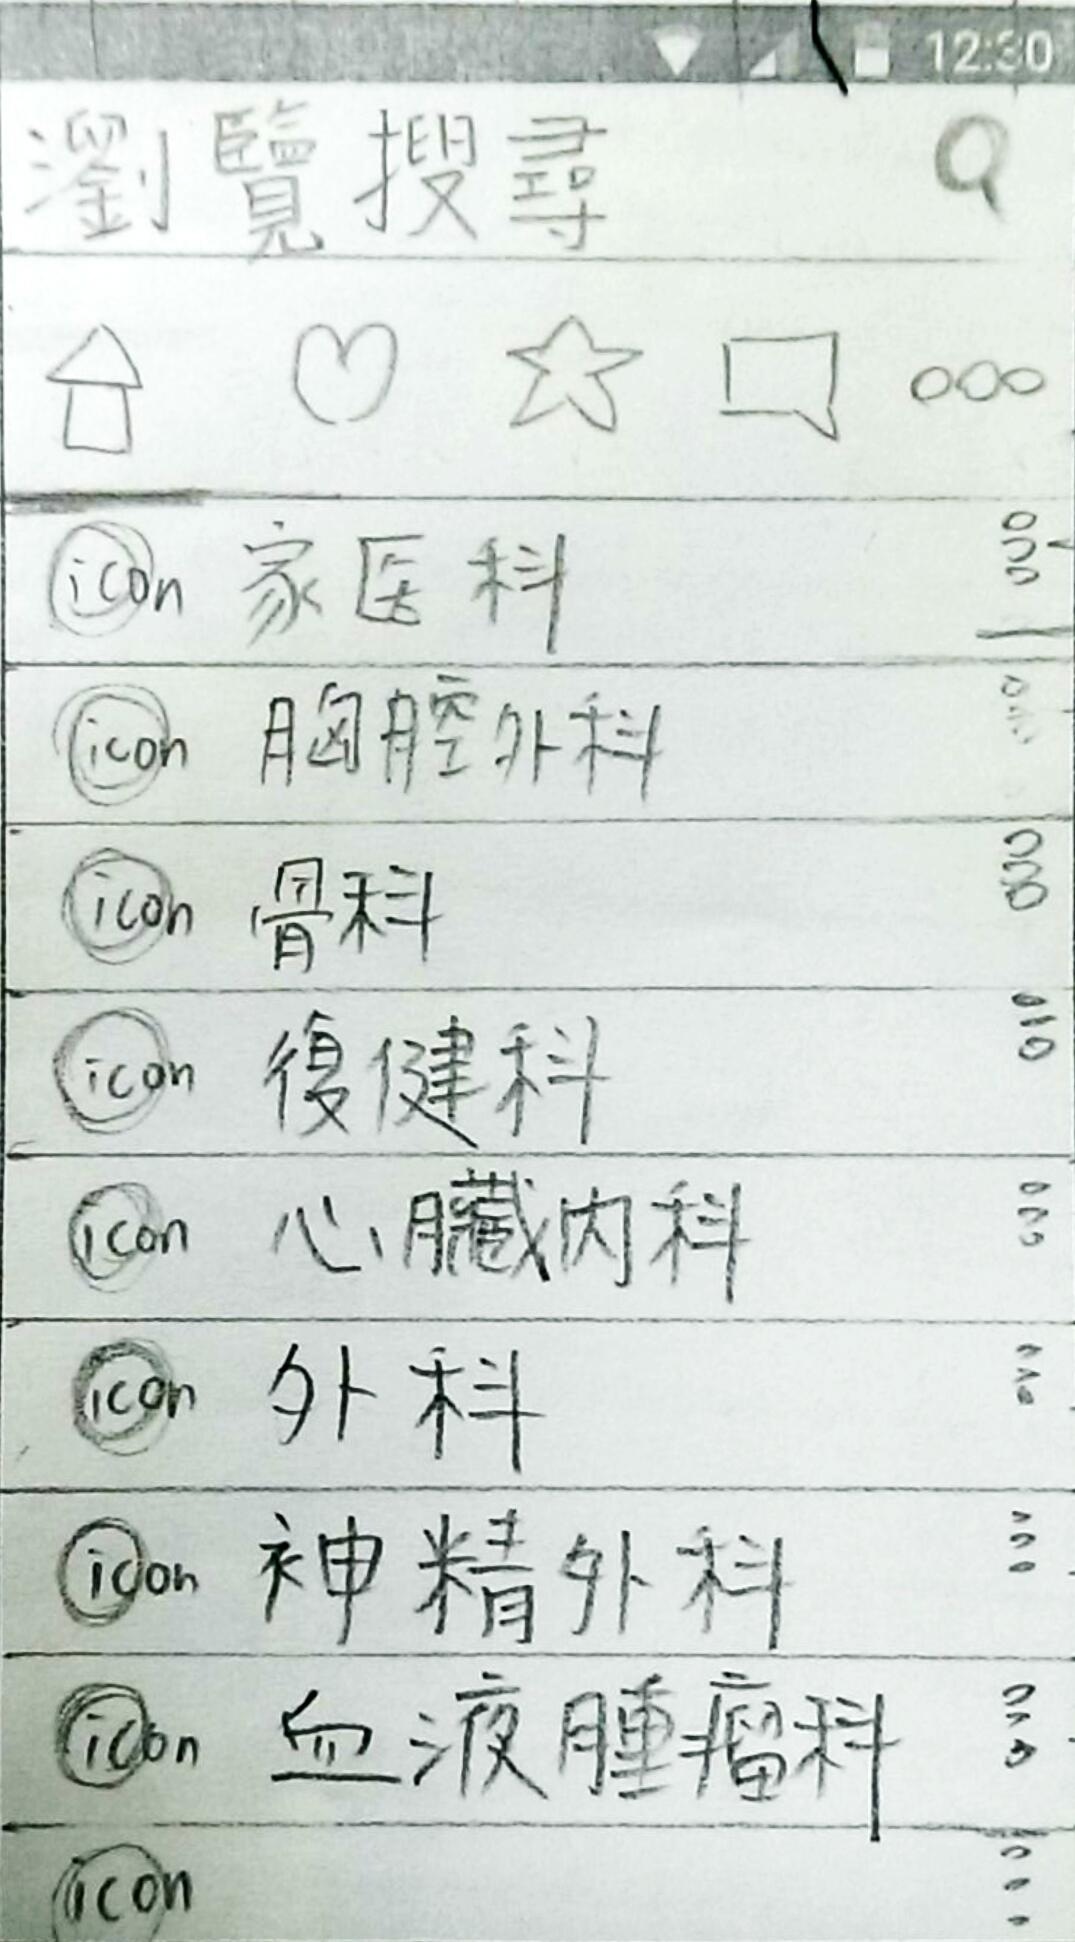 12:30
瀏覽搜尋
icon 家医科
icon 胸腔外科
icon 骨科
icon 復健科
icon 心臟內科
icon 外科
icon 神精外科
icon 血液腫瘤科
icon